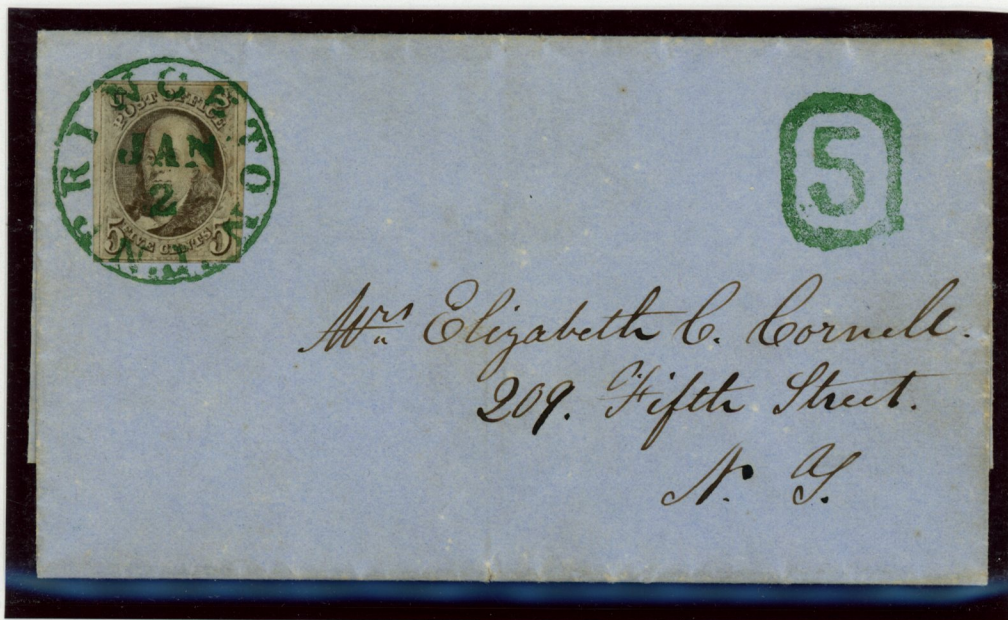 PRINCETON N.J.
JAN
2
POST OFFICE
5 FIVE CENTS 5
5
Mrs Elizabeth C. Cornell.
209. Fifth Street.
N. Y.